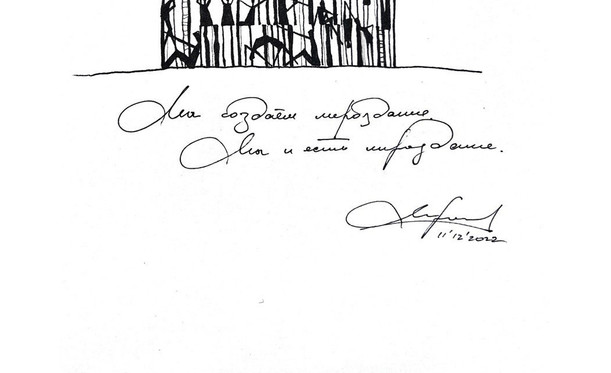 Мы создаём мироздание
Мы и есть мироздание.
11'12'2022